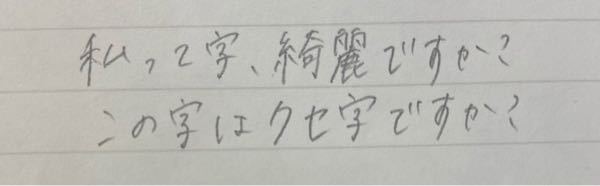 私って字、綺麗ですか?
この字はクセ字ですか?